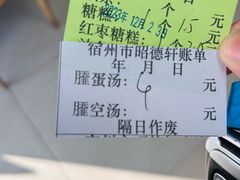 糖糕: 个 15 元
2023年12月23
红枣糖糕: 个 元
宿州市昭德轩账单
年 月 日
䐁蛋汤: 4 元
䐁空汤: 元
隔日作废